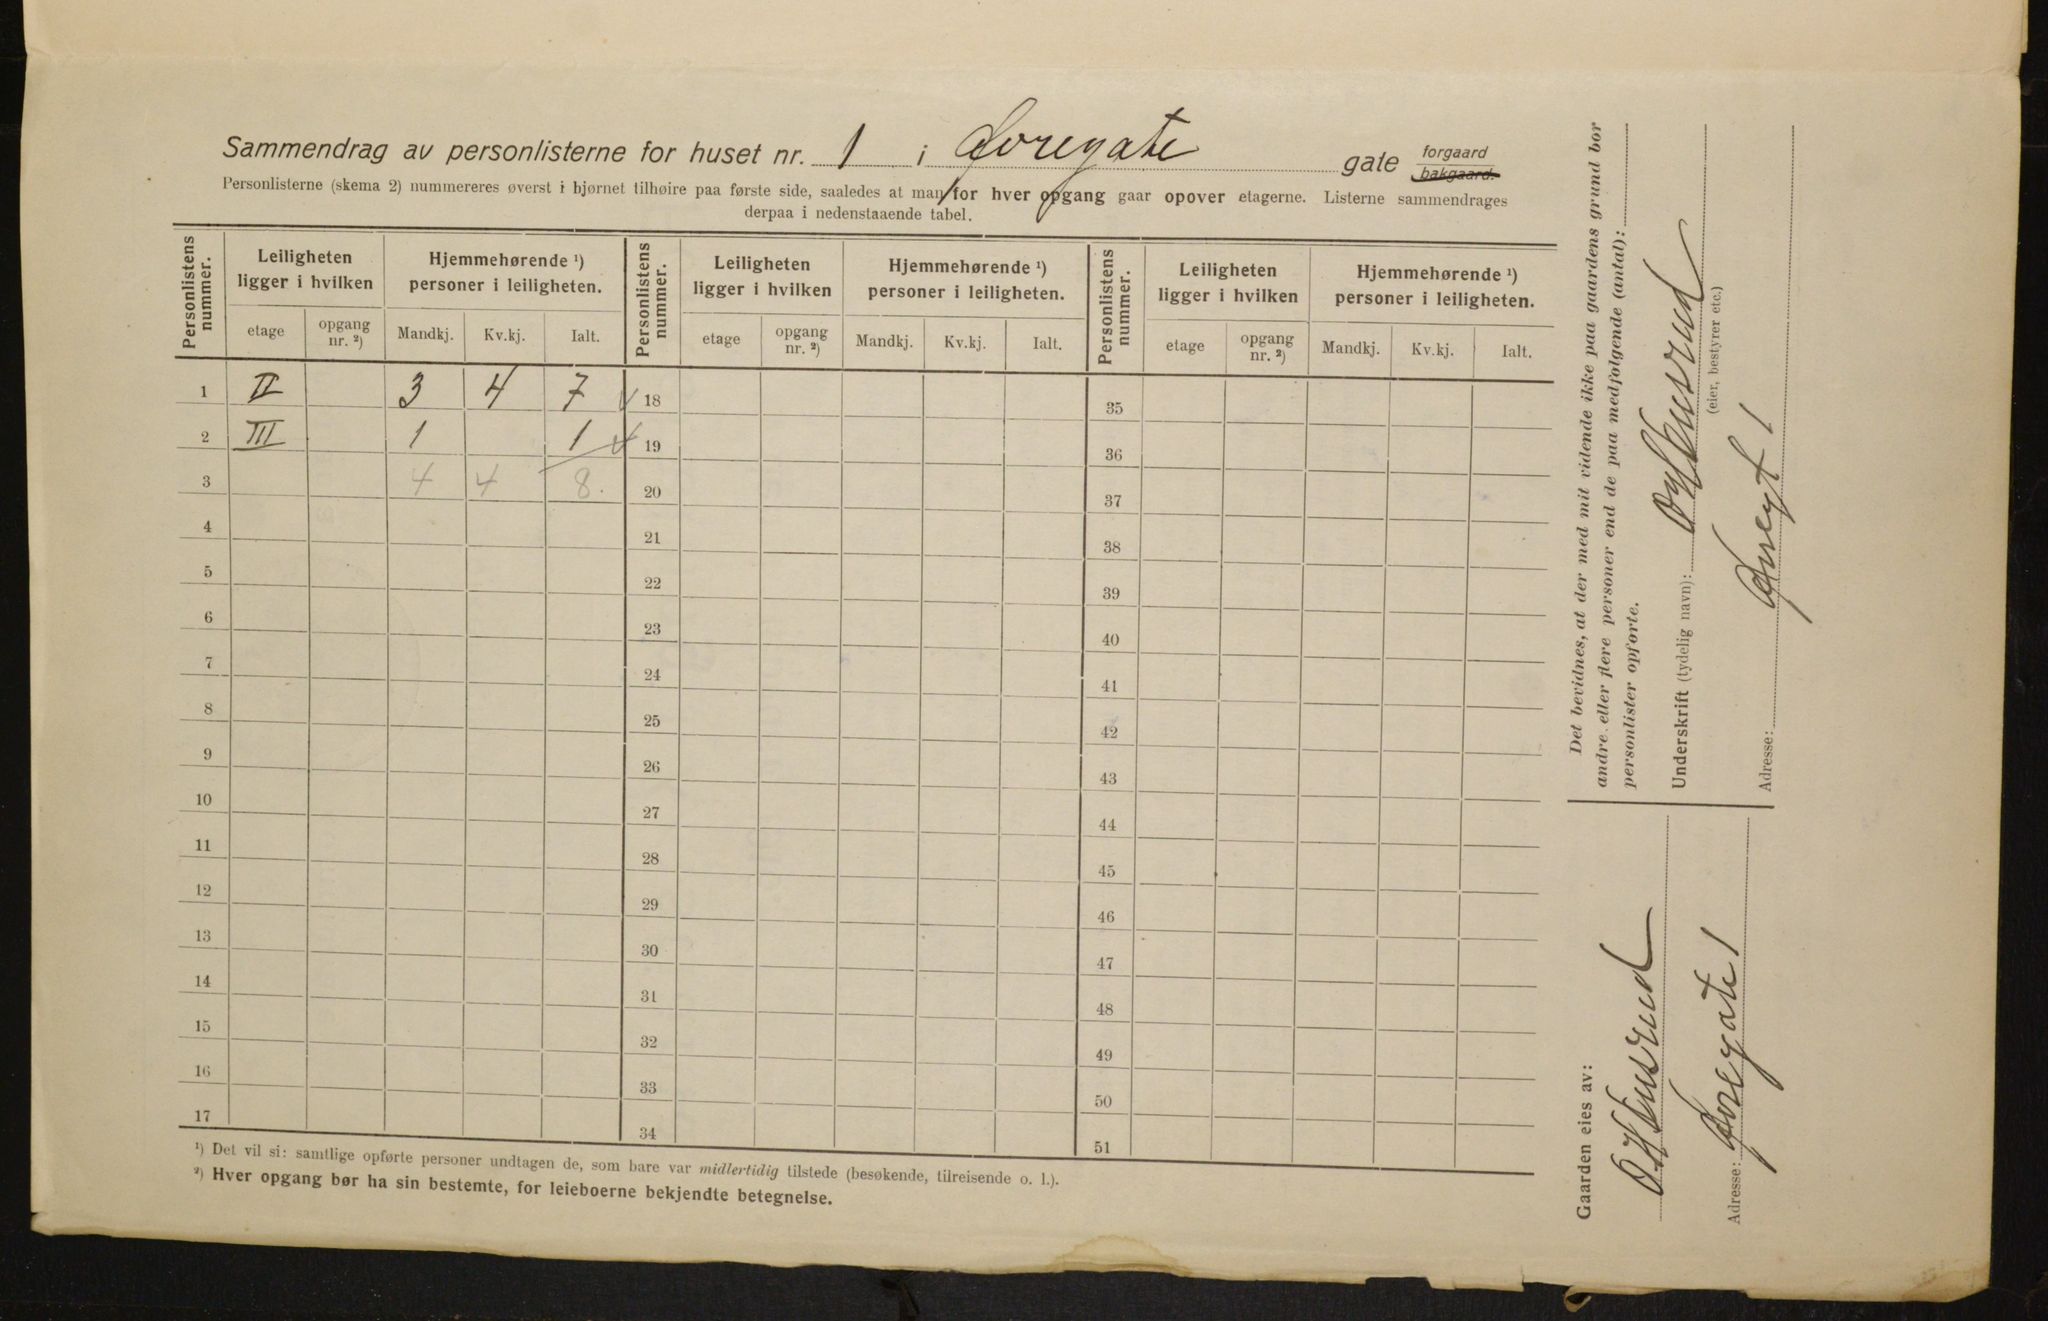 Sammendrag av personlisterne for huset nr. 1 i gate forgaard bakgaard.
Personlisterne (skema 2) nummereres øverst i hjørnet tilhøire paa første side, saaledes at man for hver opgang gaar opover etagerne. Listerne sammendrages
derpaa i nedenstaaende tabel.
Personlistens nummer. Leiligheten ligger i hvilken Hjemmehørende ¹) personer i leiligheten. Personlistens nummer. Leiligheten ligger i hvilken Hjemmehørende ¹) personer i leiligheten. Personlistens nummer. Leiligheten ligger i hvilken Hjemmehørende ¹) personer i leiligheten.
etage opgang nr. ²) Mandkj. Kv.kj. Ialt. etage opgang nr. ²) Mandkj. Kv.kj. Ialt. etage opgang nr. ²) Mandkj. Kv.kj. Ialt.
1 II 3 4 7 18 35
2 III 1 1 19 36
3 4 4 8. 20 37
4 21 38
5 22 39
6 23 40
7 24 41
8 25 42
9 26 43
10 27 44
11 28 45
12 29 46
13 30 47
14 31 48
15 32 49
16 33 50
17 34 51
¹) Det vil si: samtlige opførte personer undtagen de, som bare var midlertidig tilstede (besøkende, tilreisende o. l.).
²) Hver opgang bør ha sin bestemte, for leieboerne bekjendte betegnelse.
Det bevidnes, at der med mit vidende ikke paa gaardens grund bor
andre eller flere personer end de paa medfølgende (antal):
personlister opførte.
Underskrift (tydelig navn):
(eier, bestyrer etc.)
Adresse: 1
Gaarden eies av:
Adresse: 1